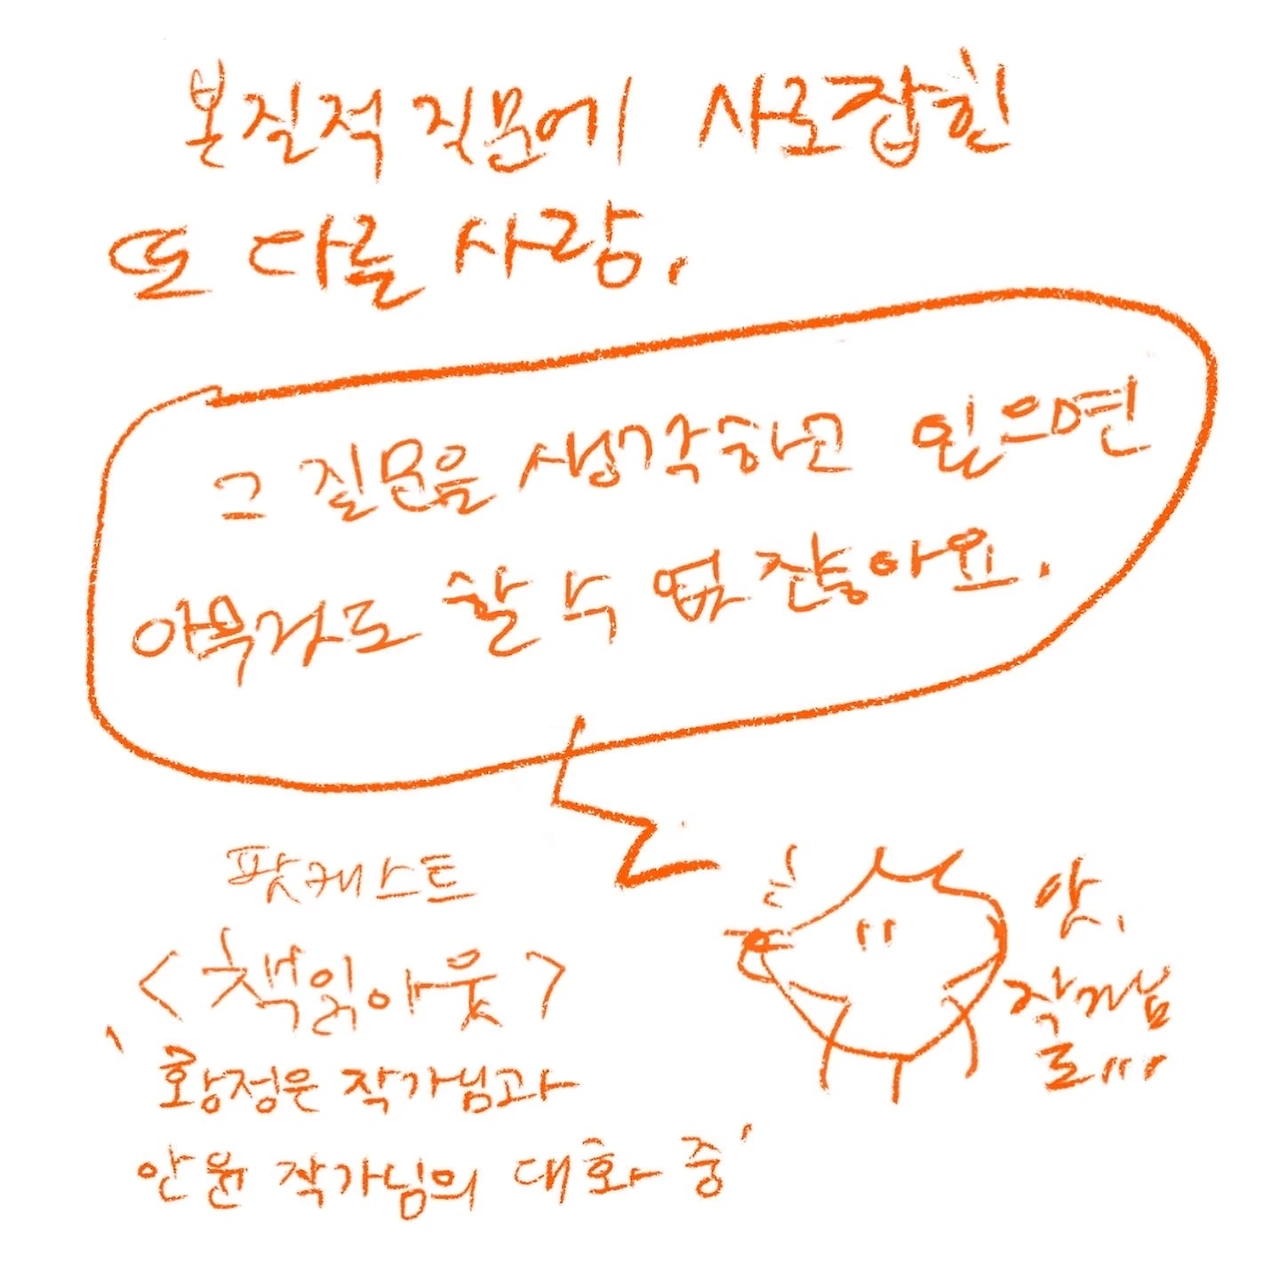 본질적 질문에 사로잡힌
또 다른 사람,
그 질문을 생각하고 있으면
아무것도 할 수 없잖아요.
팟캐스트
<책읽아웃>
'황정은 작가님과
안윤 작가님의 대화 중'
앗,
작가님
도...